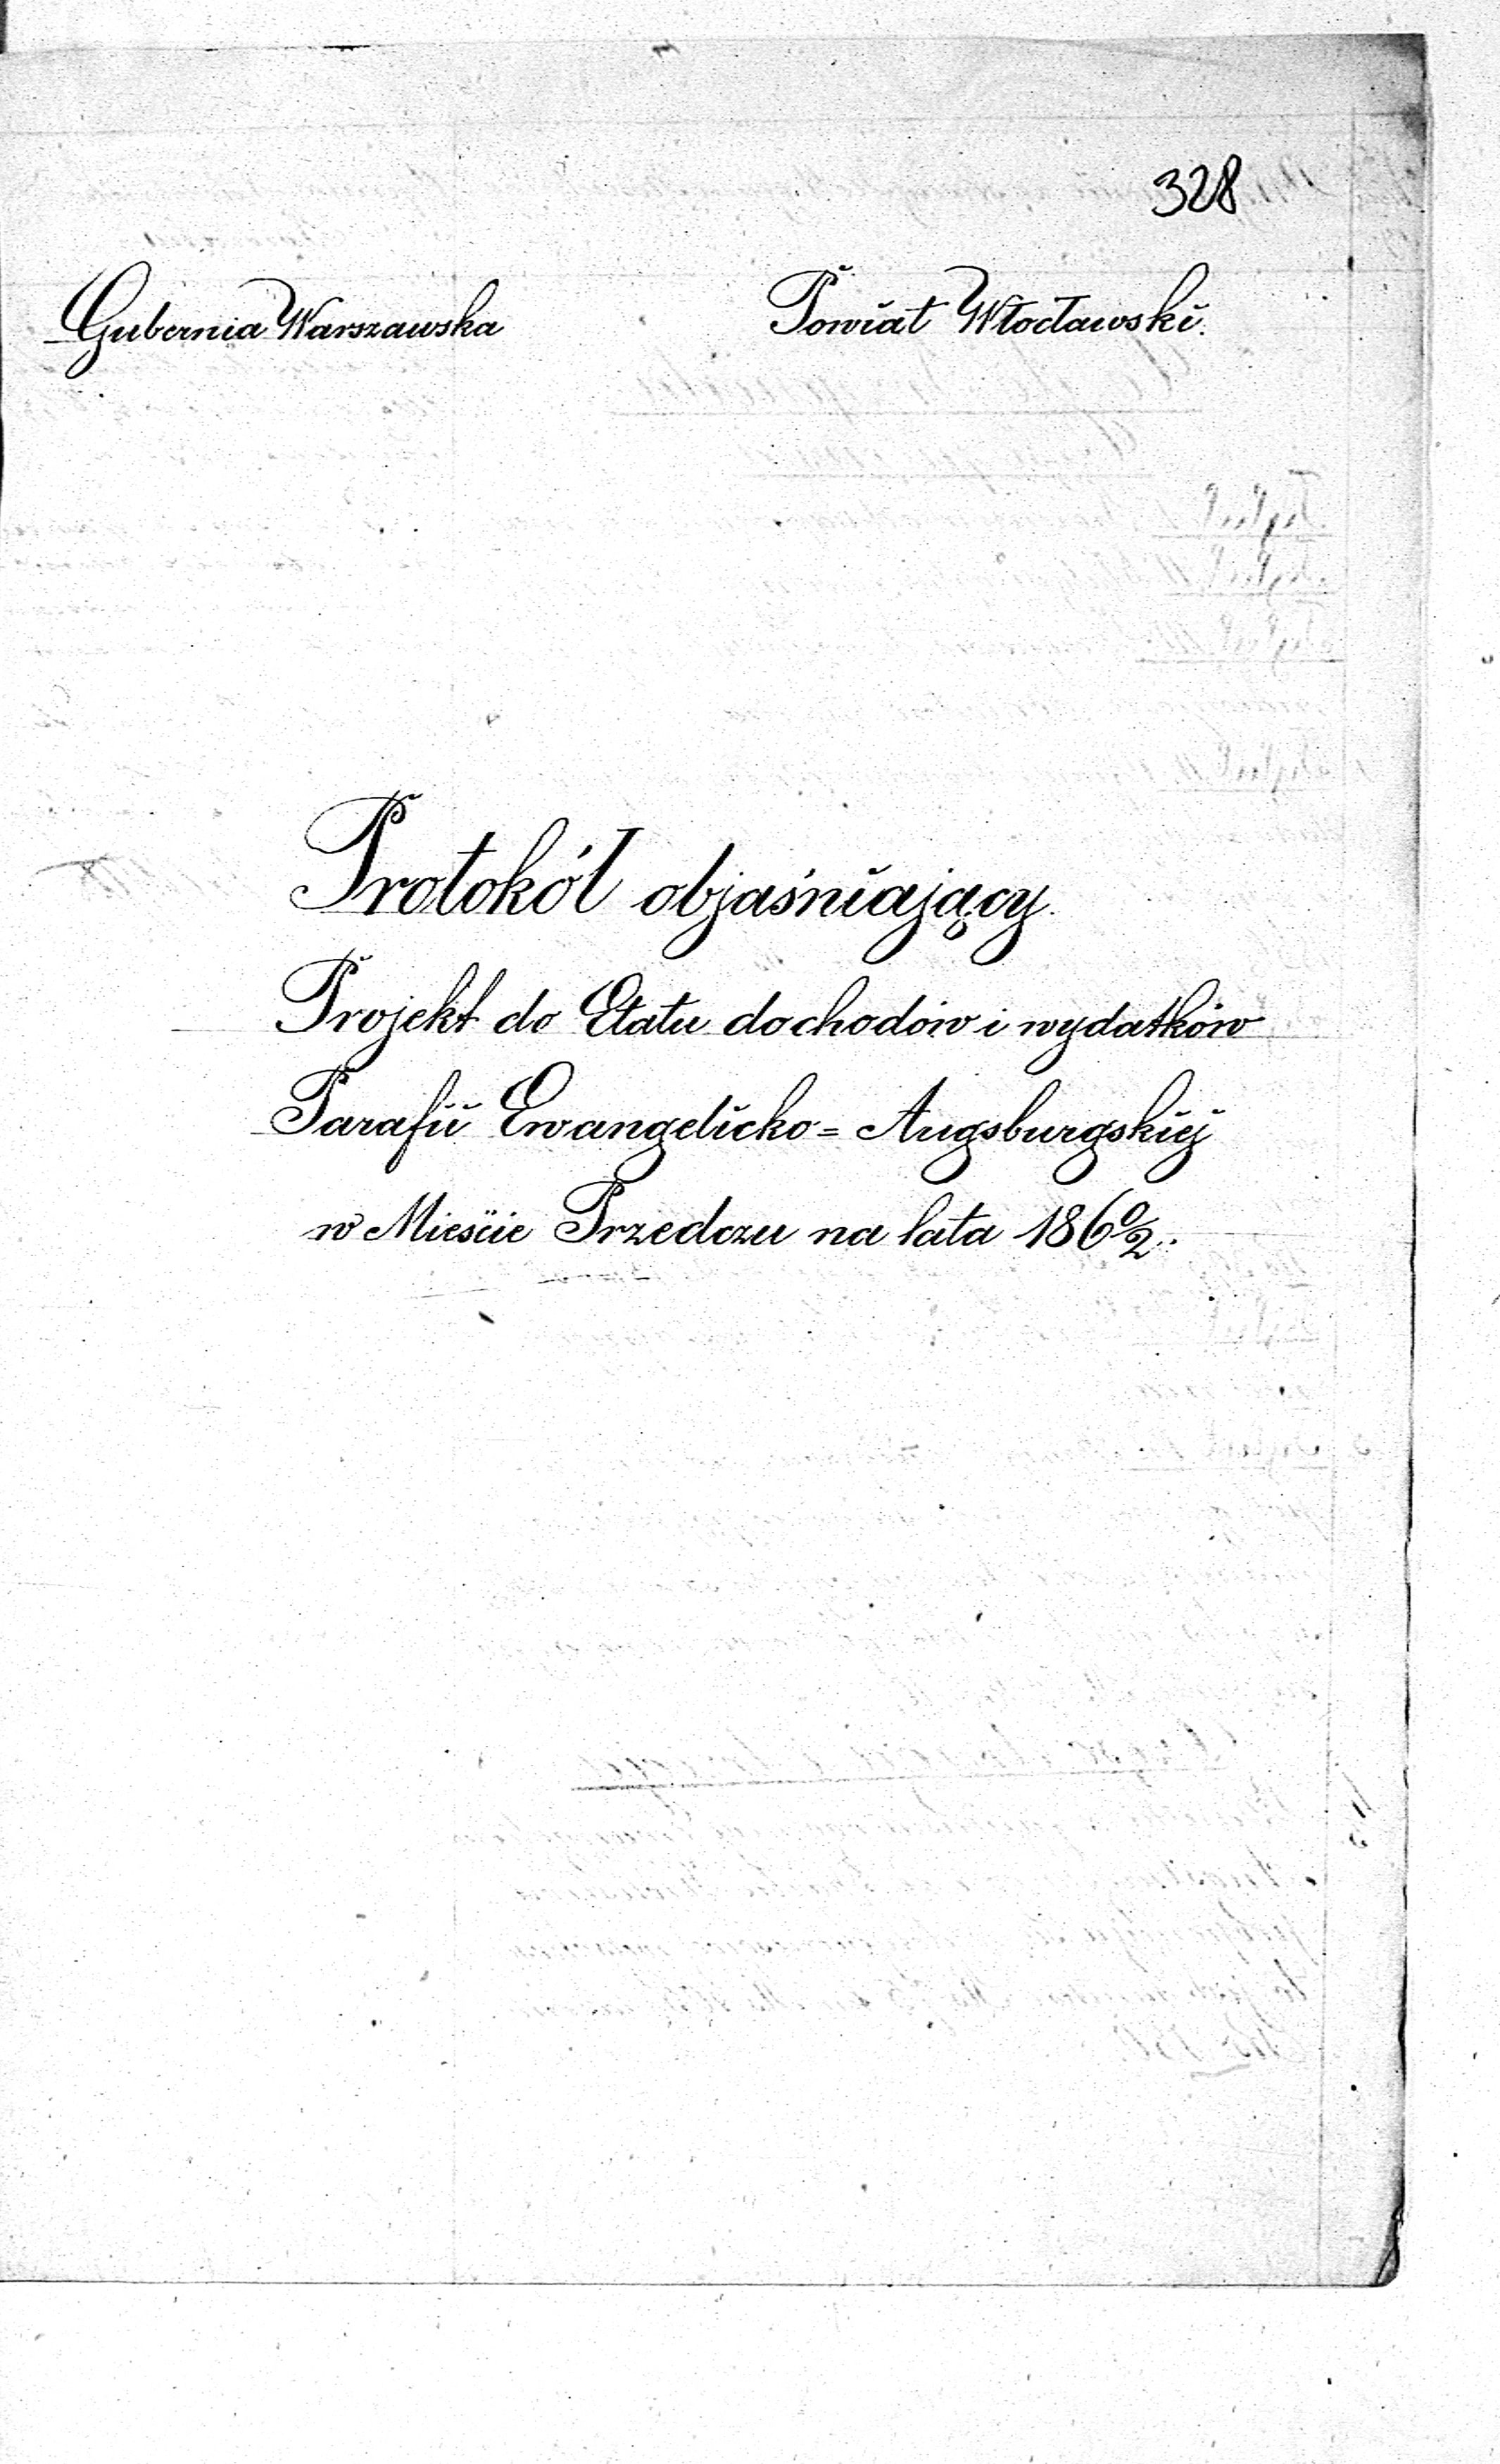 328
Gubernia Warszawska Powiat Włocławski.
Protokół objaśniający
Projekt do Etatu dochodów i wydatków
Parafii Ewangelicko = Augsburgskiéj
w Mieście Przedczu na lata 186 0/2.